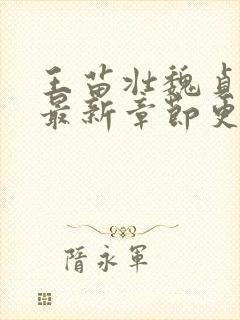 王苗壮魏贞
最新章节更
隋永军